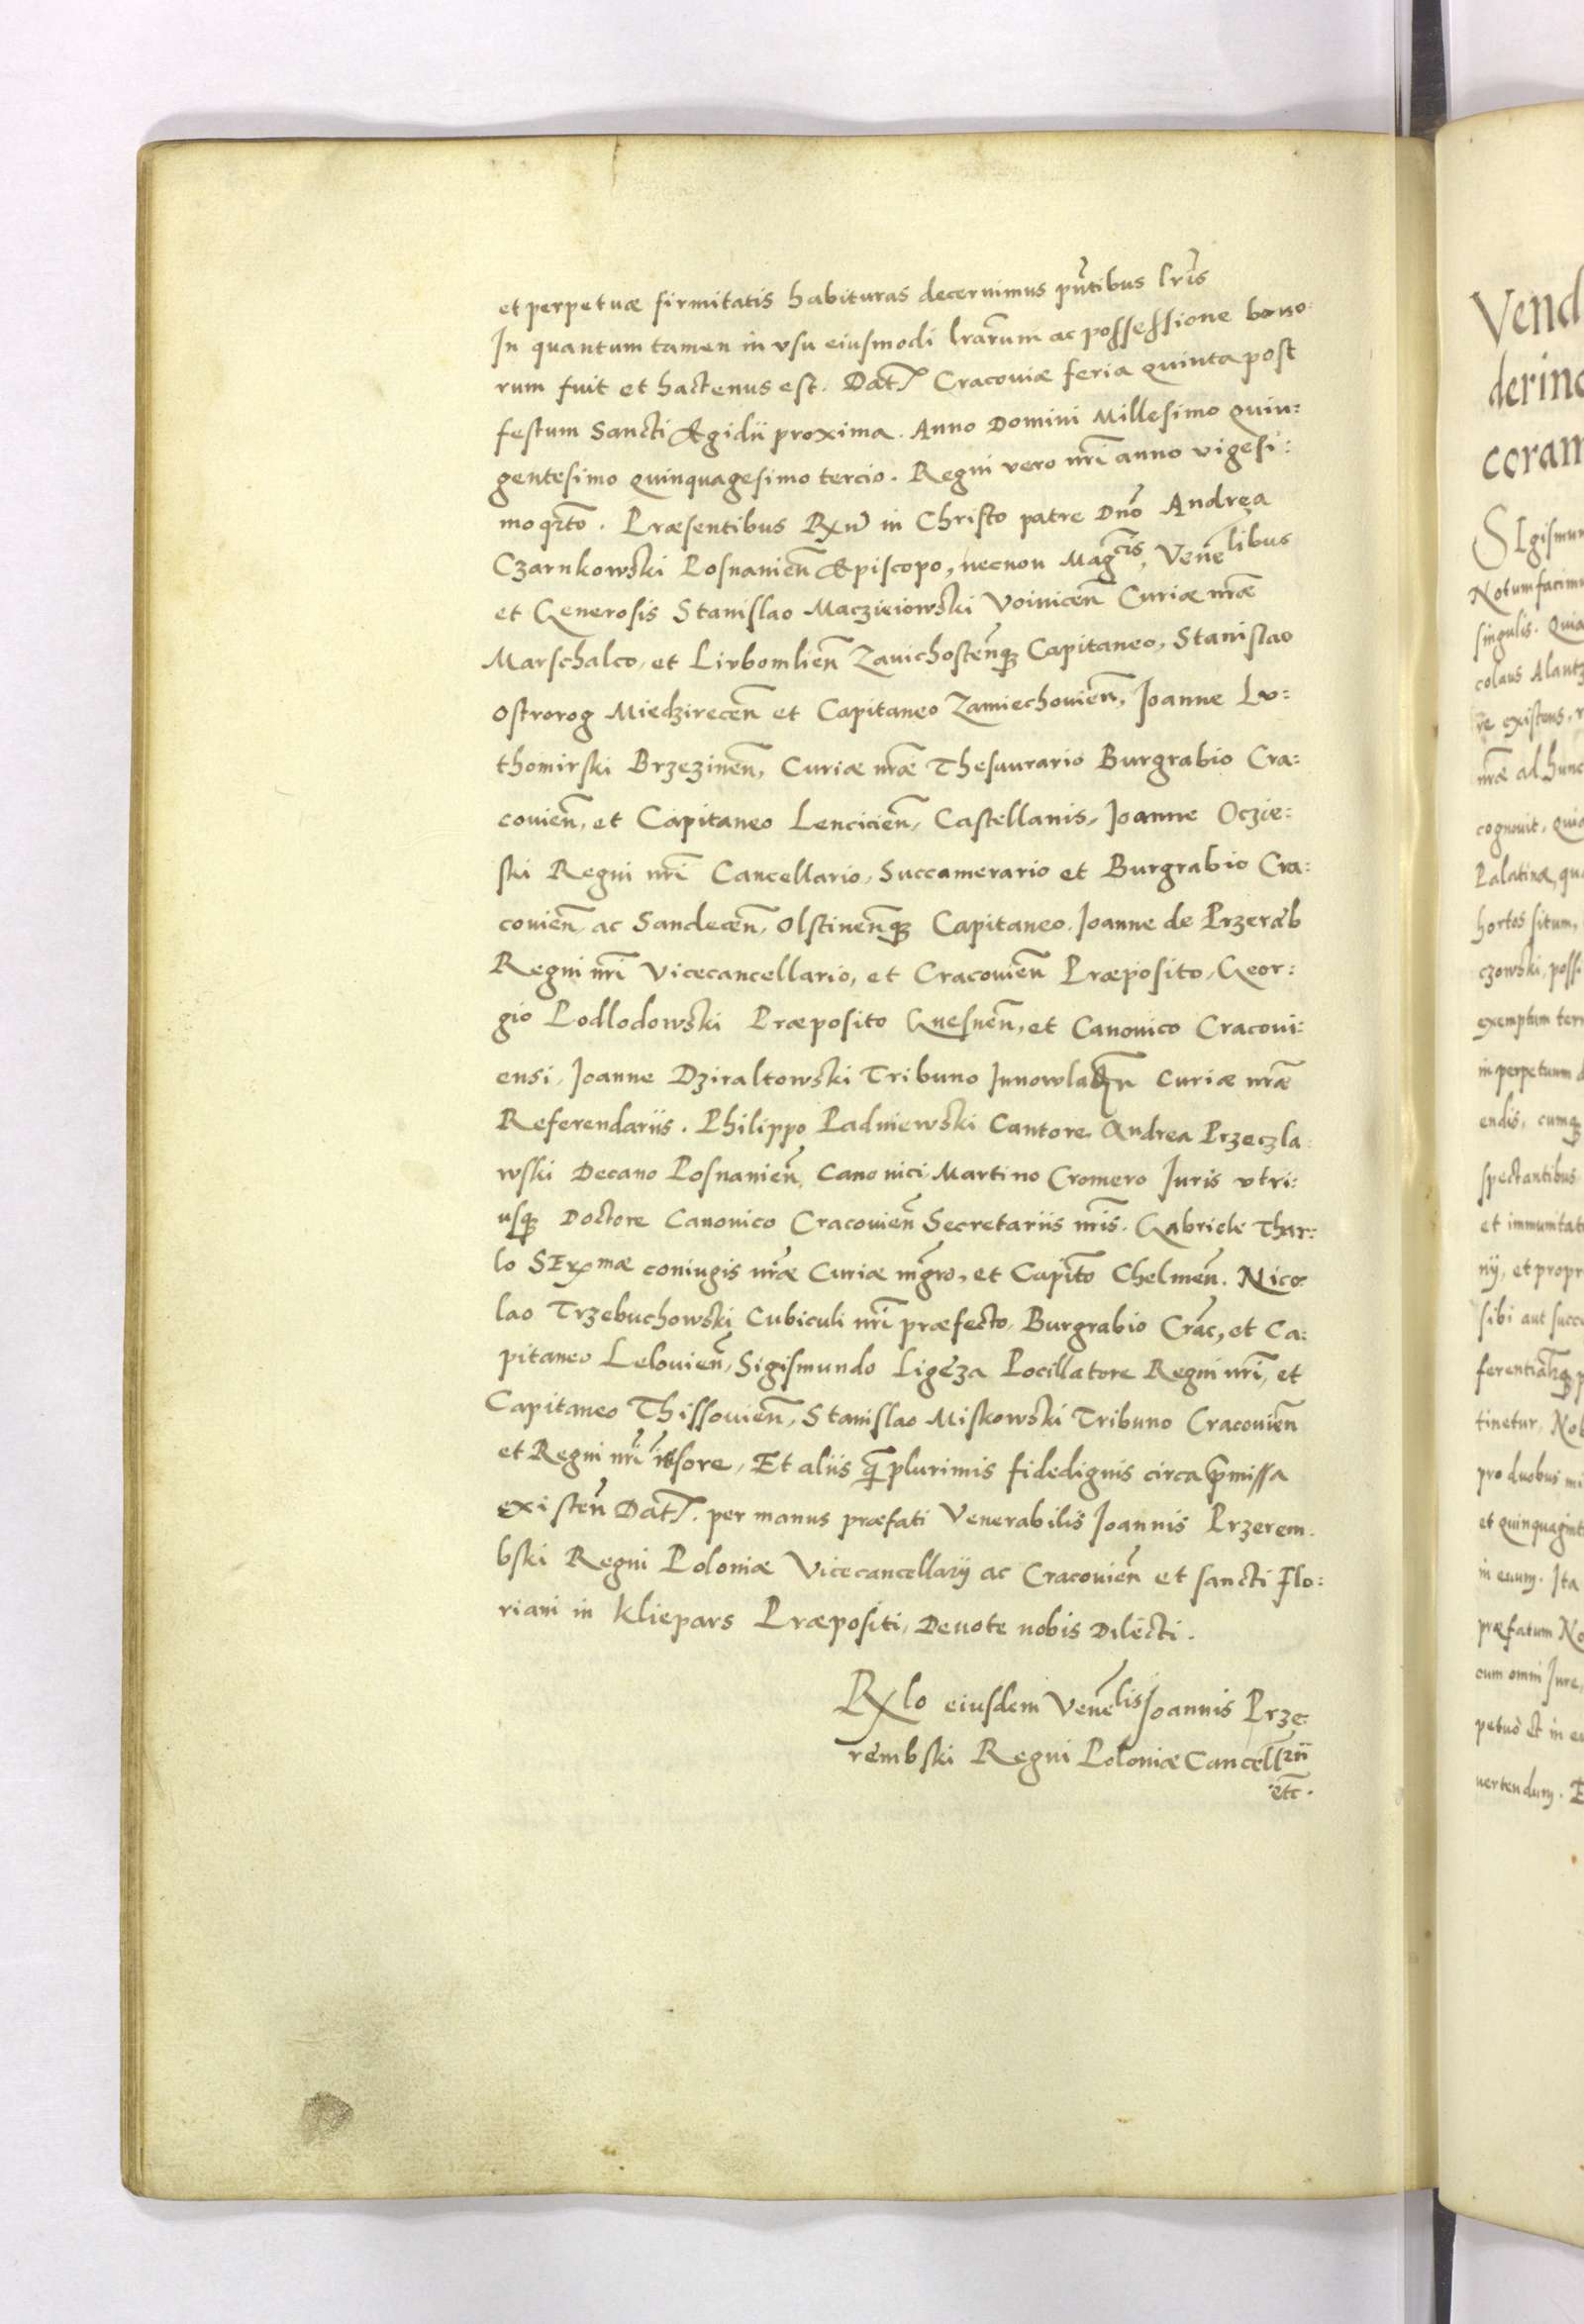 et perpetuæ firmitatis habituras decernimus pñtibus lr̃is
In quantum tamen in vsu eiusmodi lrãrum ac possessione bono:
rum fuit et hactenus est. Dat. Cracouiæ feria quinta post
festum Sancti Ægidii proxima. Anno Domini Millesimo quin:
gentesimo quinquagesimo tercio. Regni vero nr̃i anno vigesi:
mo qrto. Præsentibus in Christo patre Dno Andrea
Czarnkowski Posnanień Æpiscopo, necnon Magcis, Venelibus
et Generosis Stanislao Maczieiowski Voiniceñ Curiæ nræ
Marschalco, et Livbomlień Zauichosteñq; Capitaneo, Stanislao
Ostrorog Miedzireceñ et Capitaneo Zamiechouień, Joanne Lu:
thomirski Brzezineñ, Curiæ nræ Thesaurario Burgrabio Cra:
couień, et Capitaneo Lencicień, Castellanis, Joanne Oczie:
ski Regni nr̃i Cancellario, Succamerario et Burgrabio Cra:
couień, ac Sandeceñ, Olstineñq; Capitaneo. Joanne de Przerab
Regni nr̃i Vicecancellario, et Cracouień Præposito, Geor:
gio Podlodowski Præposito Gnesneñ, et Canonico Cracoui:
ensi, Joanne Dziraltowski Tribuno Curiæ nræ
Referendariis. Philippo Padniewski Cantore, Andrea Przecla:
wski Decano Posnanień, Canonici, Martino Cromero Juris vtri:
usq; Doctore Canonico Cracouień Secretariis nr̃is. Gabriele Thar:
lo coniugis nræ Curiæ mgro, et Capito Chelmeñ. Nico:
lao Trzebuchowski Cubiculi nr̃i præfecto, Burgrabio Crac, et Ca:
pitaneo Lelouień, Sigismundo Ligeza Pocillatore Regni nr̃i, et
Capitaneo Thissouień, Stanislao Miskowski Tribuno Cracouień
et Regni nr̃i, Et aliis q̃plurimis fidedignis circa p̃missa
existeñ Dat. per manus præfati Venerabilis Joannis Przerem:
bski Regni Poloniæ Vicecancellarij ac Cracouień et sancti Flo:
riani in Kliepars Præpositi, Deuote nobis Dilecti.
Rlo eiusdem Venelis Joannis Prze:
rembski Regni Poloniæ Cancellrii
etc.
Vend
coram
SIgismun
Notum facim
singulis. Quia
colaus Alantz
re existens,
nræ ad hunc
cognouit, quia
Palatinæ, qu
hortos situm,
czowski, poss
exemptum terr
in perpetuum
endis, cumq;
spectantibus
et immunitat
nij, et propr
sibi aut succ
tinetur, Nob
pro duobus mi
et quinquagint
in euum. Ita
præfatum No
cum omni Jure,
petuò et in e
uertendum. E